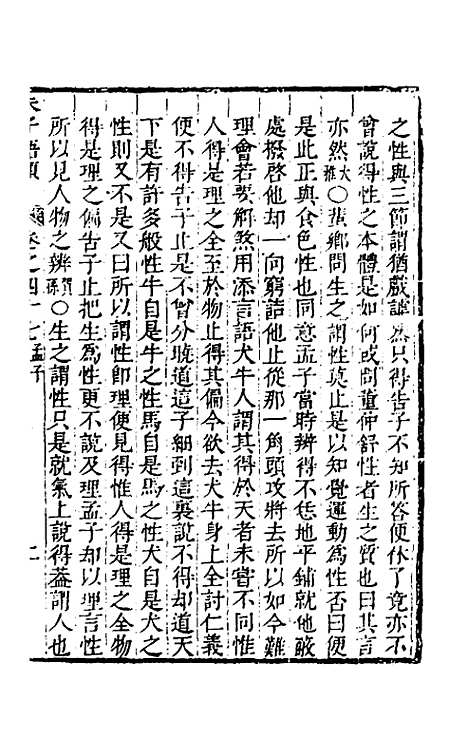 之性與三節謂猶戲謔然只得告子不知所答便休了竟亦不
曾說得性之本體是如何或問董仲舒性者生之質也曰其言
亦然大雅○蜚卿問生之謂性莫止是以知覺運動爲性否曰便
是此正與食色性也同意孟子當時辨得不恁地平鋪就他蔽
處撥啓他却一向窮詰他止從那一角頭攻將去所以如今難
理會若要解煞用添言語犬牛人謂其得於天者未嘗不同惟
人得是理之全至於物止得其偏今欲去犬牛身上全討仁義
便不得告子止是不曾分曉道這子細到這裏說不得却道天
下是有許多般性牛自是牛之性馬自是馬之性犬自是犬之
性則又不是又曰所以謂性即理便見得惟人得是理之全物
得是理之偏告子止把生爲性更不說及理孟子却以理言性
所以見人物之辨○生之謂性只是就氣上說得蓋謂人也
朱子語類 卷之四十七 孟子 二